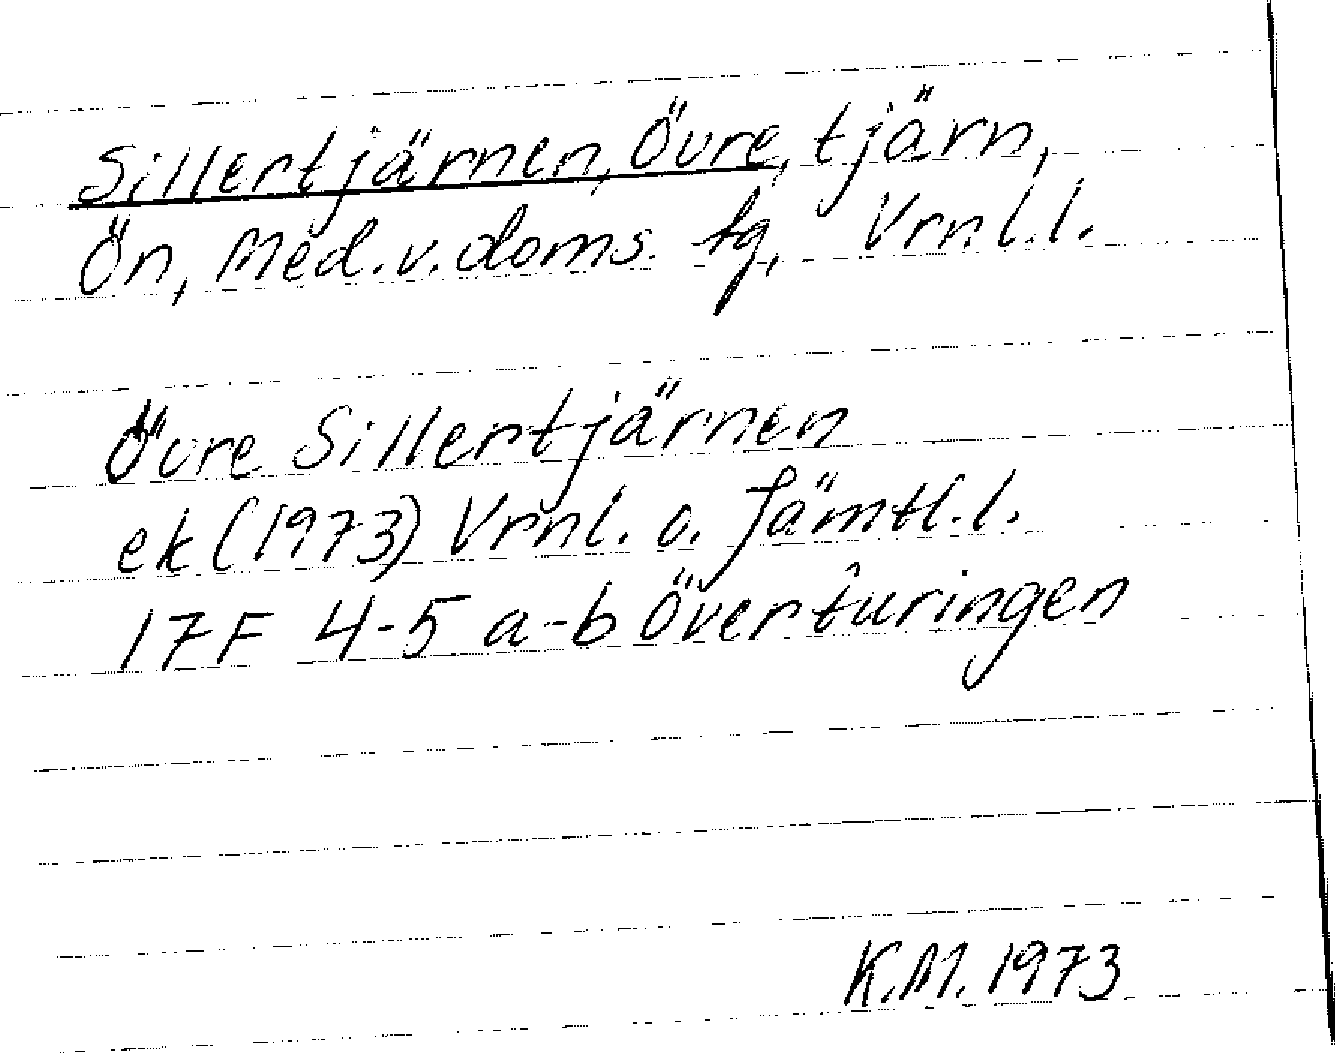 Sillertjärnen, Övre, tjärn,
Ön, Med. v. doms. tg, Vrnl.l.
Övre Sillertjärnen
ek (1973) Vrnl. o. Jämtl.l.
17F 4-5 a-b Överturingen
K.M. 1973